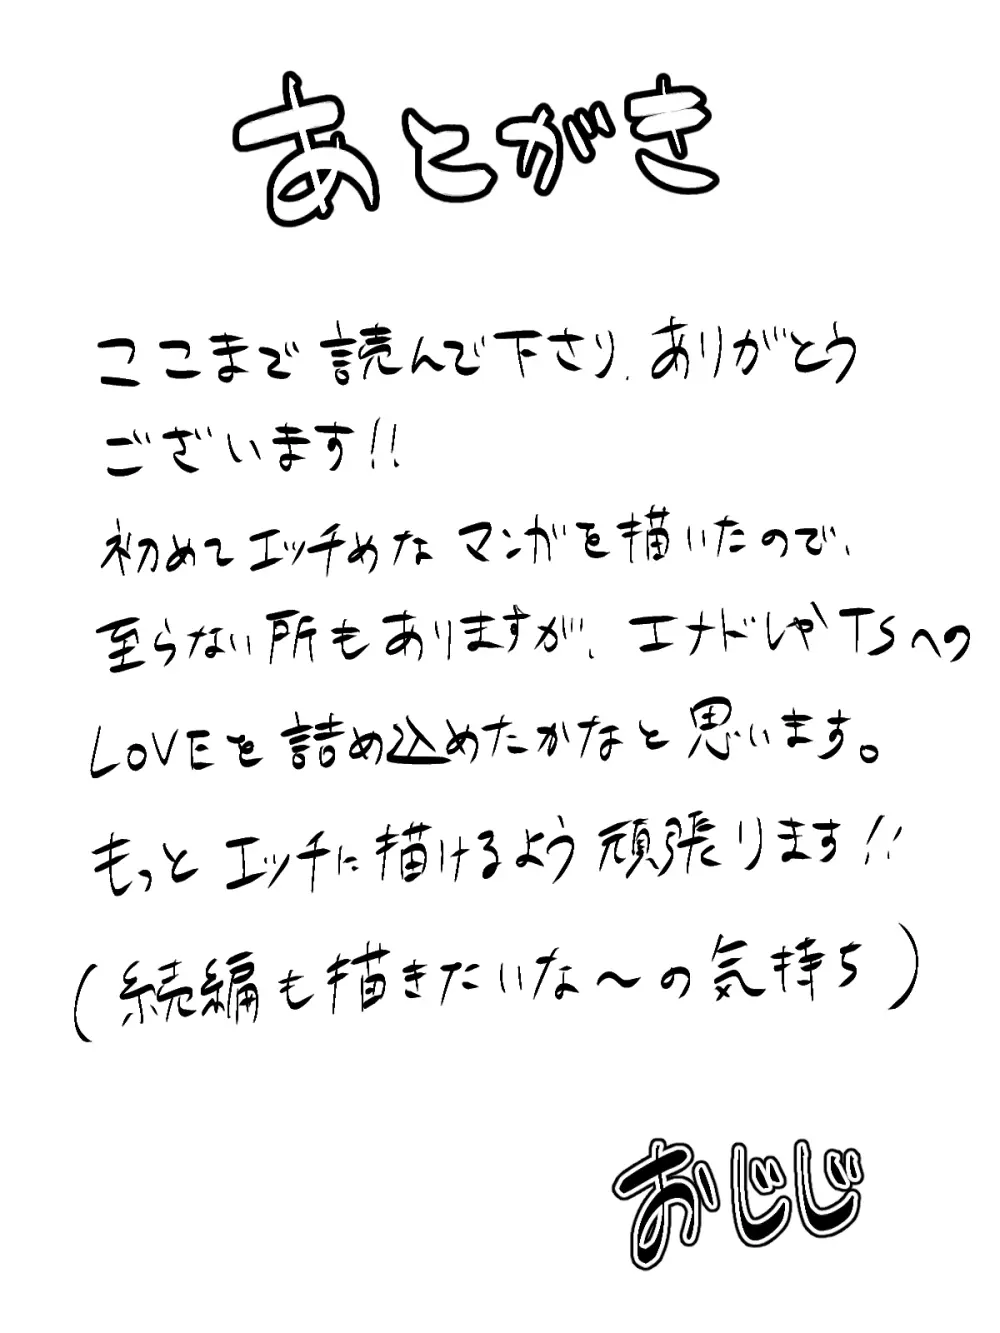 あとがき
ここまで読んで下さり、ありがとう
ございます!!
初めてエッチめなマンガを描いたので、
至らない所もありますが、エナドレやTSへの
LOVEを詰め込めたかなと思います。
もっとエッチに描けるよう頑張ります!!
(続編も描きたいな～の気持ち)
おじじ